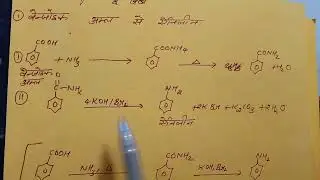 ① बेन्जोइक अम्ल से ऐनिलीन
① COOH + NH3 → COONH4 —△→ CONH2 + H2O
बेन्जोइक अम्ल
⑪ O C–NH2 —4KOH/Br2→ NH2 + 2KBr + K2CO3 + 2H2O
ऐनिलीन
COOH —NH3/△→ CONH2 —KOH/Br2→ NH2